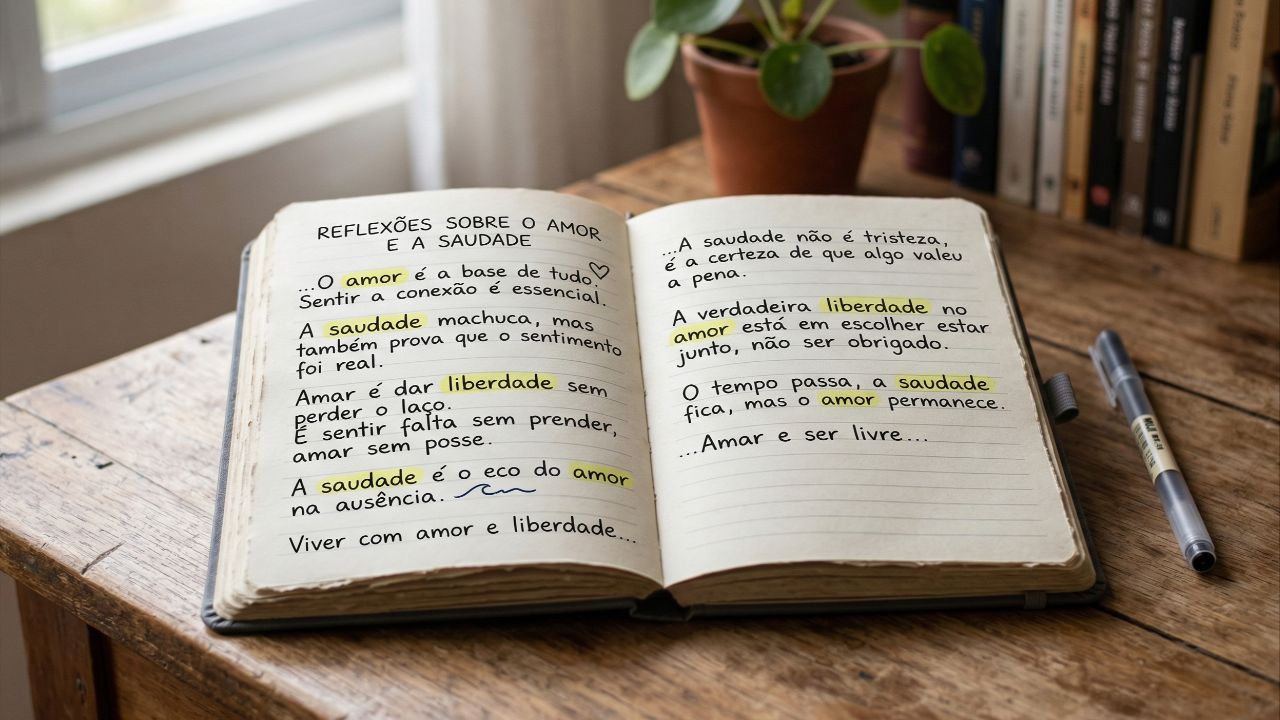 REFLEXÕES SOBRE O AMOR
E A SAUDADE
...O amor é a base de tudo.
Sentir a conexão é essencial.
A saudade machuca, mas
também prova que o sentimento
foi real.
Amar é dar liberdade sem
perder o laço.
É sentir falta sem prender,
amar sem posse.
A saudade é o eco do amor
na ausência.
Viver com amor e liberdade...
...A saudade não é tristeza,
é a certeza de que algo valeu
a pena.
A verdadeira liberdade no
amor está em escolher estar
junto, não ser obrigado.
O tempo passa, a saudade
fica, mas o amor permanece.
...Amar e ser livre...